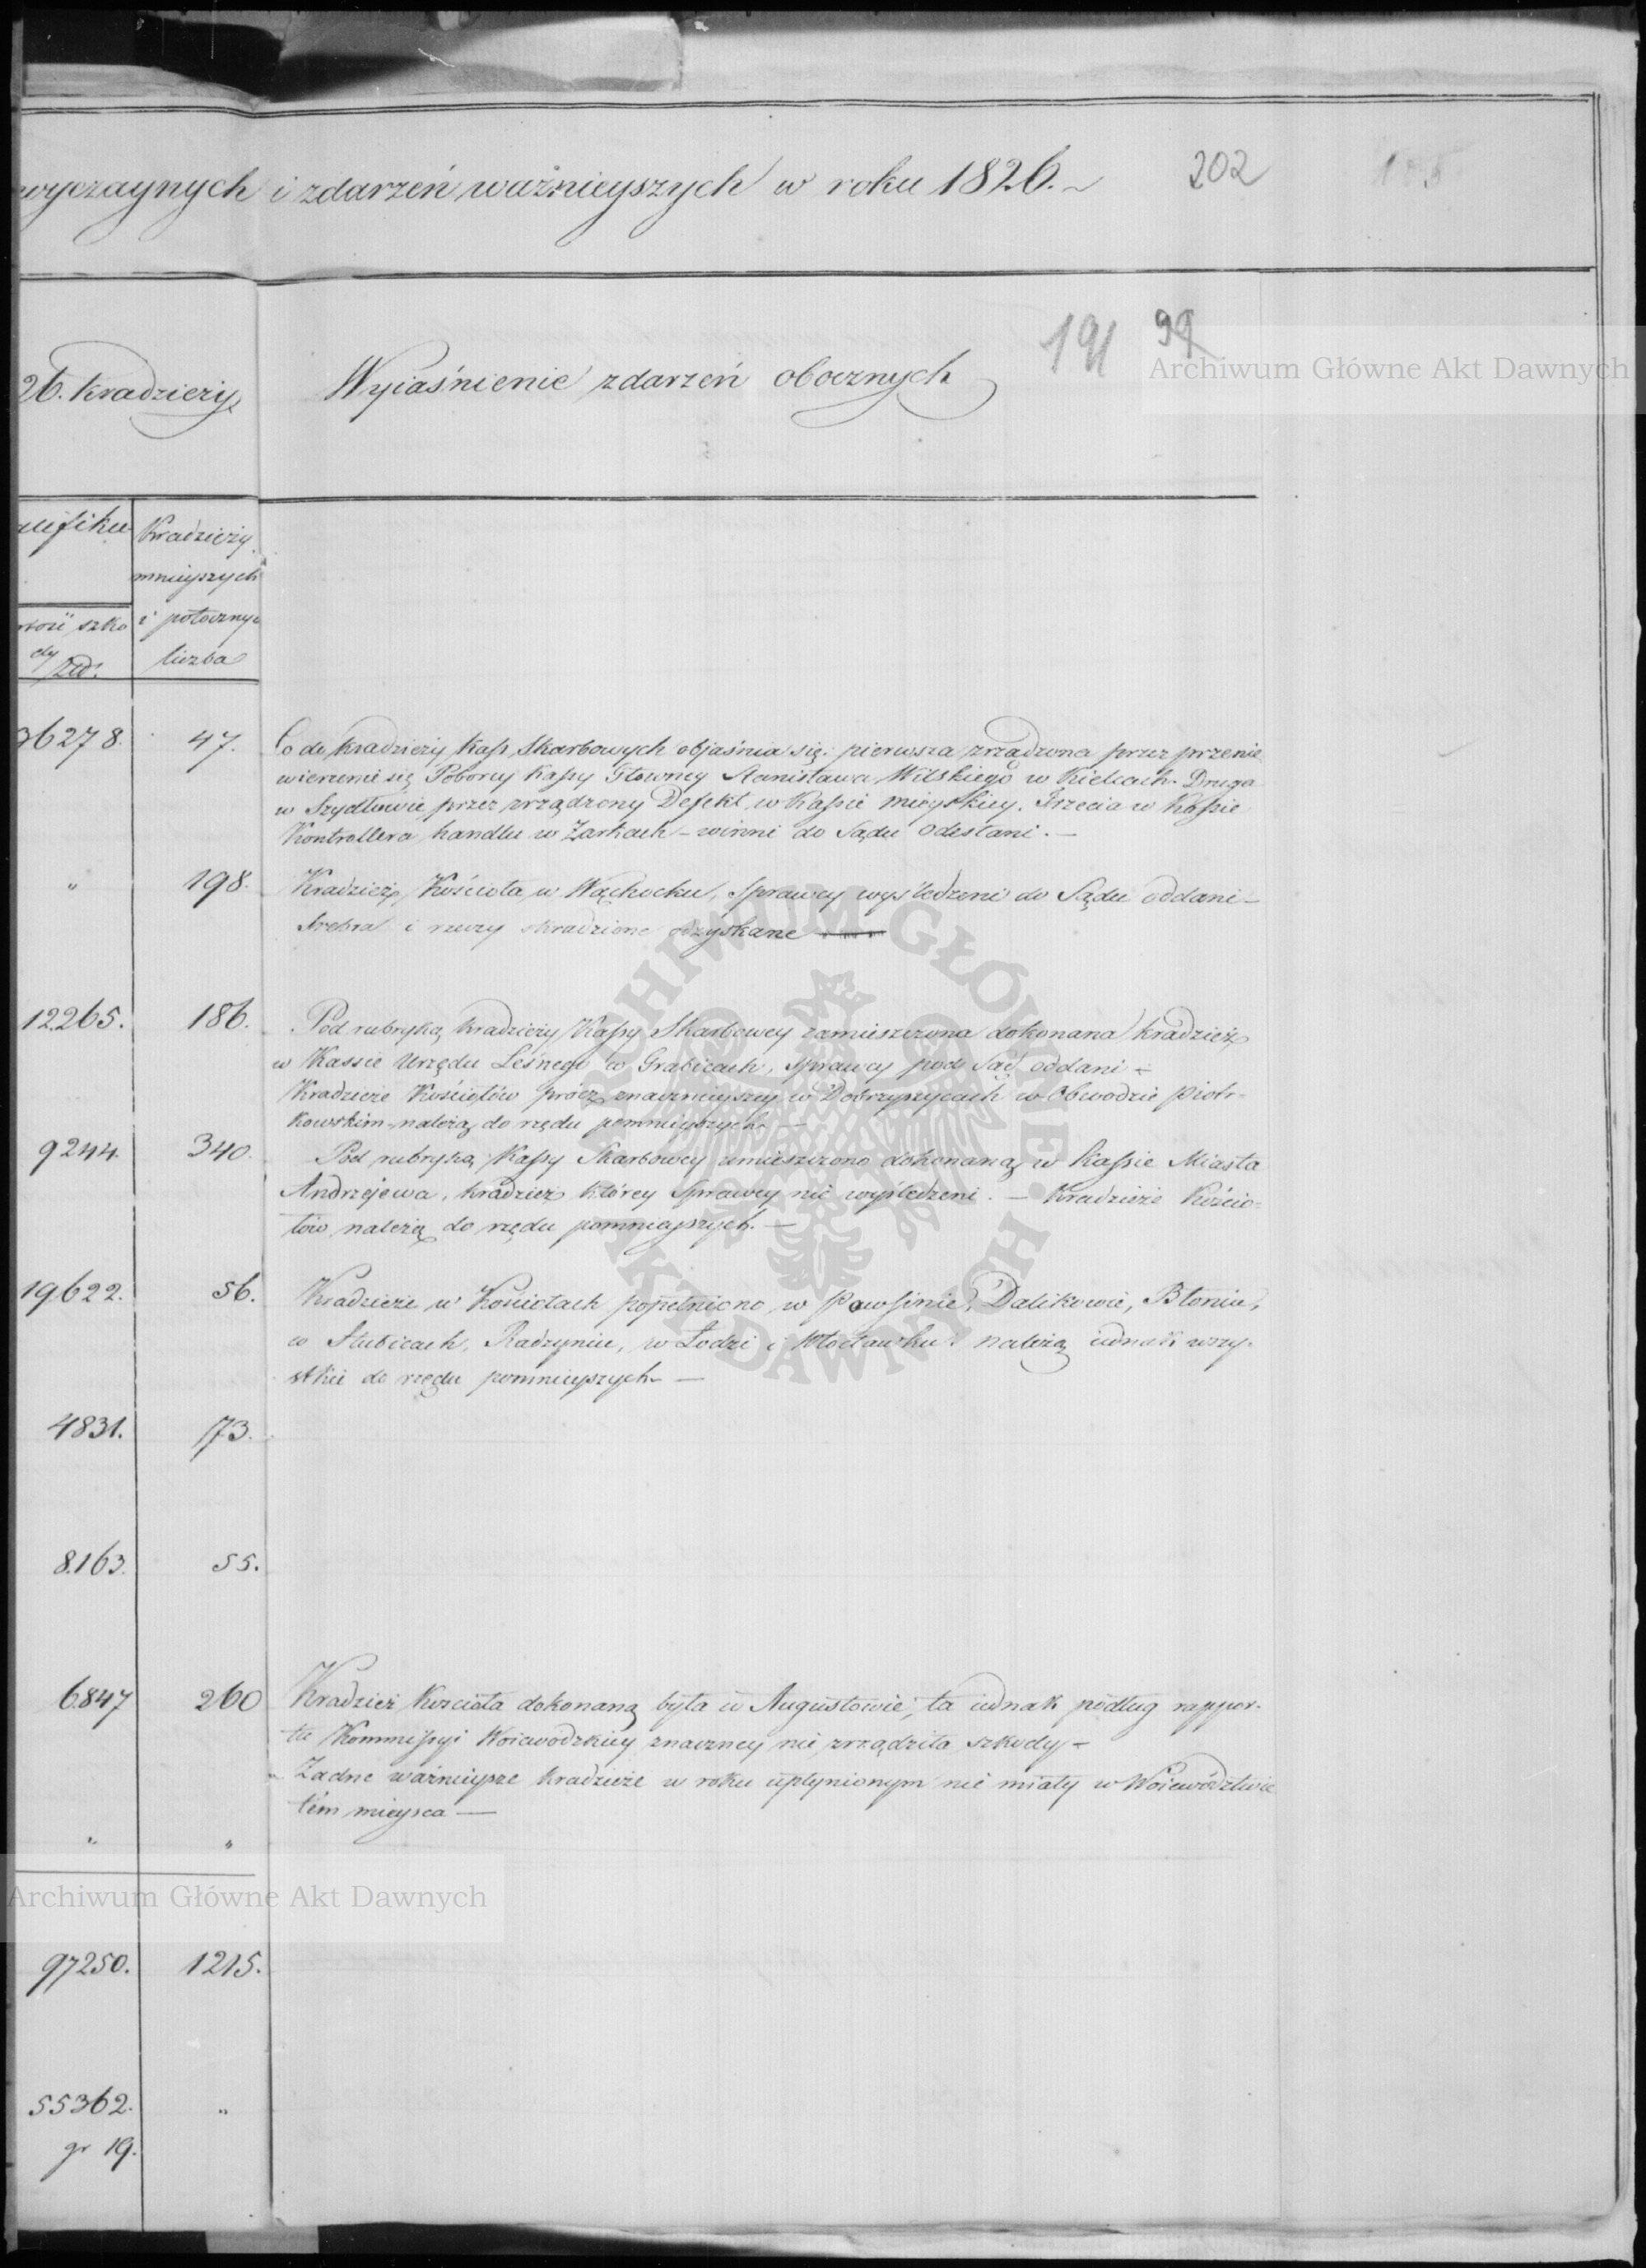 wyczaynych i zdarzeń ważnieyszych w roku 1826.
202
191 99
26. Kradzieży
Wyiaśnienie zdarzeń obocznych
Archiwum Główne Akt Dawnych
Kradzieży
mnieyszych
szko i potoczny
dy liczba
Zł.
36278. 47. Co do kradzieży Kass Skarbowych objaśnia się: pierwsza zrządzona przez przenie
wierzenie się Poborcy Kassy Głowney Stanisława Wilskiego w Kielcach. Druga
w Szydłowie przez zrządzony Defekt w Kassie mieyskiey. Trzecia w Kassie
Kontrollera handlu w Żarkach – winni do Sądu odesłani. —
" 198. Kradzież Kościoła w Wąchocku, Sprawcy wyśledzeni do Sądu oddani –
Srebra i rzeczy skradzione odzyskane
12265. 186. Pod rubryką kradzieży Kassy Skarbowey zamieszczona dokonana kradzież
w Kassie Urzędu Leśnego w Grabicach, sprawcy pod Sąd oddani –
Kradzieże Kościołów prócz znacznieyszey w Dobrzyszycach w Obwodzie Piotr-
kowskim należą do rzędu pomnieyszych. —
9244. 340. Pod rubryką Kassy Skarbowey umieszczono dokonaną w Kassie Miasta
Andrzejewa, kradzież którey Sprawcy nie wyśledzeni. — Kradzieże Kościo-
łów należą do rzędu pomnieyszych. —
19622. 56. Kradzieże w Kościołach popełniono w Pawsinie, Dalikowie, Błoniu,
w Słubicach, Radzyniu, w Łodzi i Włocławku należą iednak wszy-
stkie do rzędu pomnieyszych —
4831. 73.
8163. 55.
6847 260 Kradzież Kościoła dokonaną była w Augustowie, ta iednak podług rappor-
tu Kommissyi Woiewodzkiey znaczney nie zrządziła szkody –
Żadne ważnieysze kradzieże w roku upłynionym nie miały w Woiewództwie
tém mieysca —
" "
Archiwum Główne Akt Dawnych
97250. 1215.
55362. "
gr 19.
ARCHIWUM GŁÓWNE AKT DAWNYCH